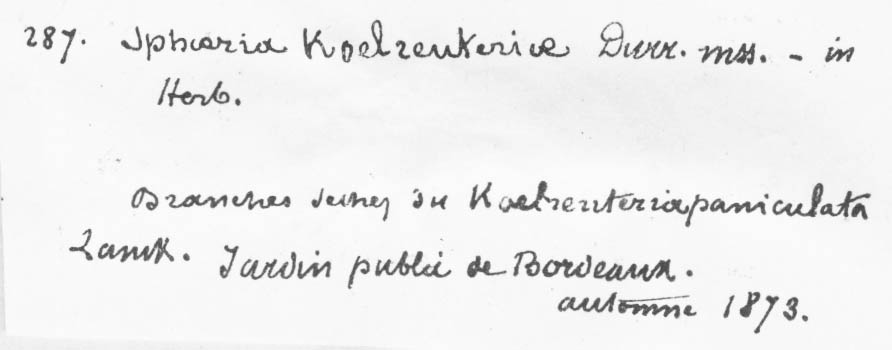 287. Sphæria Koelreuteriæ Durr. mss. - in
Herb.
Branches seches du Koelreuteria paniculata
Lamk. Jardin public de Bordeaux.
automne 1873.